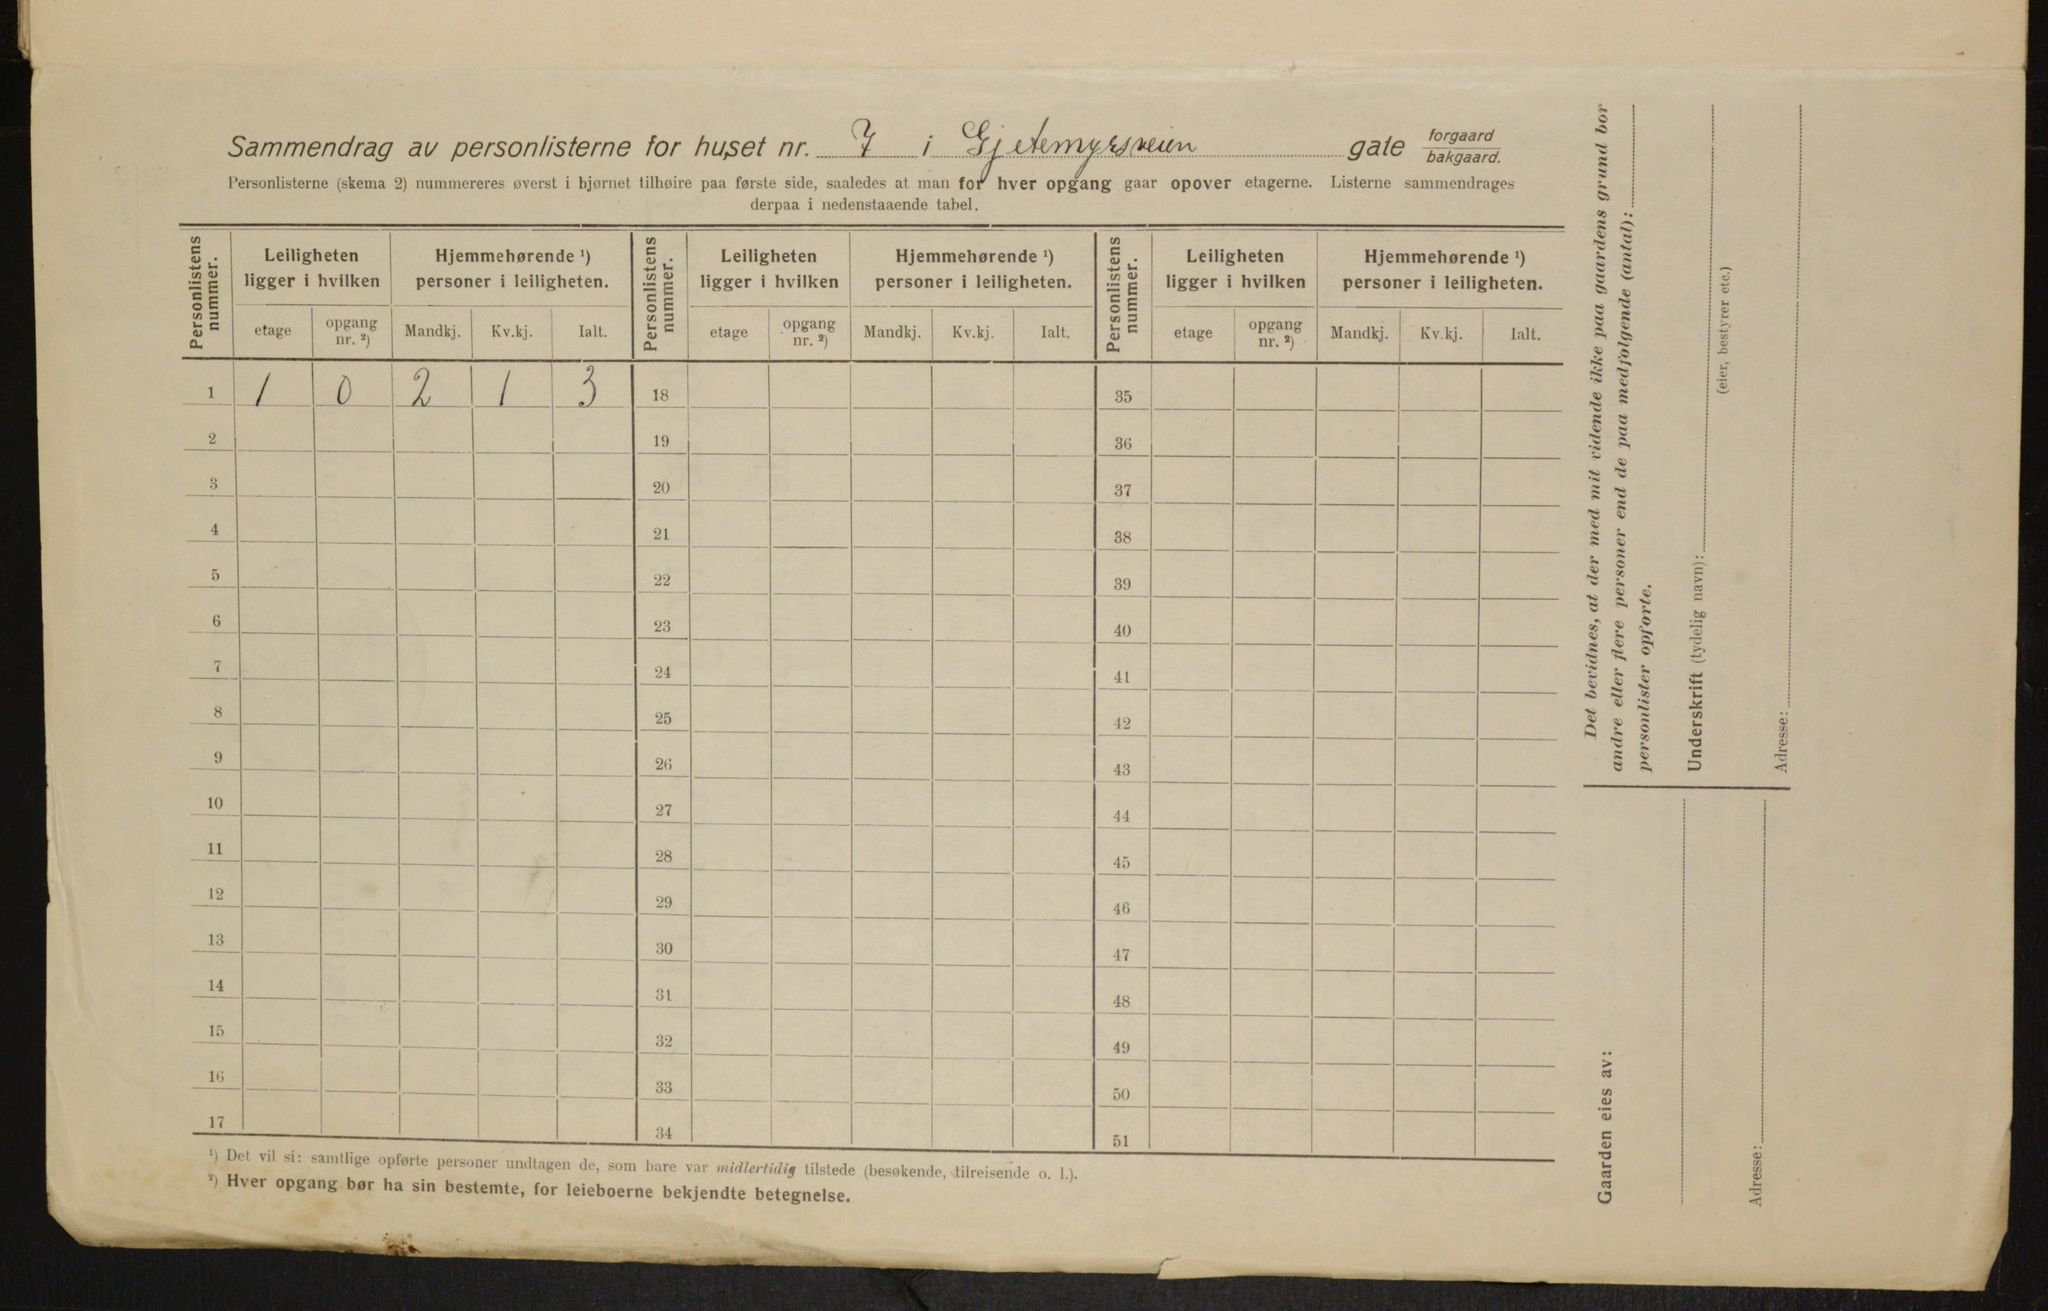 Sammendrag av personlisterne for huset nr. 7 i Gjetemyrsveien gate forgaard bakgaard.
Personlisterne (skema 2) nummereres øverst i hjørnet tilhøire paa første side, saaledes at man for hver opgang gaar opover etagerne. Listerne sammendrages
derpaa i nedenstaaende tabel.
Personlistens nummer. Leiligheten ligger i hvilken Hjemmehørende ¹) personer i leiligheten. Personlistens nummer. Leiligheten ligger i hvilken Hjemmehørende ¹) personer i leiligheten. Personlistens nummer. Leiligheten ligger i hvilken Hjemmehørende ¹) personer i leiligheten.
etage opgang nr. ²) Mandkj. Kv.kj. Ialt. etage opgang nr. ²) Mandkj. Kv.kj. Ialt. etage opgang nr. ²) Mandkj. Kv.kj. Ialt.
1 1 0 2 1 3 18 35
2 19 36
3 20 37
4 21 38
5 22 39
6 23 40
7 24 41
8 25 42
9 26 43
10 27 44
11 28 45
12 29 46
13 30 47
14 31 48
15 32 49
16 33 50
17 34 51
¹) Det vil si: samtlige opførte personer undtagen de, som bare var midlertidig tilstede (besøkende, tilreisende o. l.).
²) Hver opgang bør ha sin bestemte, for leieboerne bekjendte betegnelse.
Det bevidnes, at der med mit vidende ikke paa gaardens grund bor
andre eller flere personer end de paa medfølgende (antal):
personlister opførte.
Underskrift (tydelig navn):
(eier, bestyrer etc.)
Adresse:
Gaarden eies av:
Adresse: